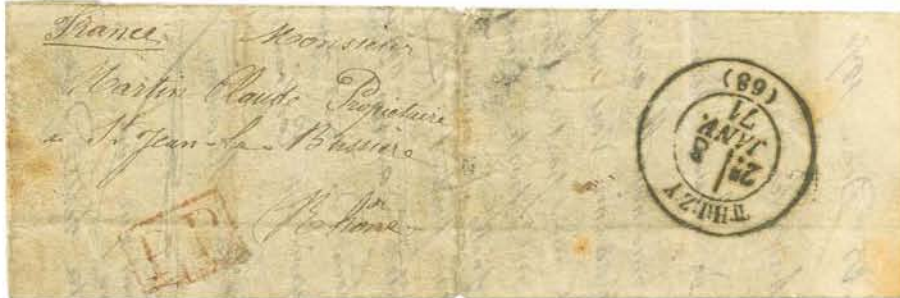 France
Monsieur
Martin Claude Propietaire
a St Jean-la-Bussiere
Rhone
P.P.
THIZY
2E
8
JANV.
71
(68)